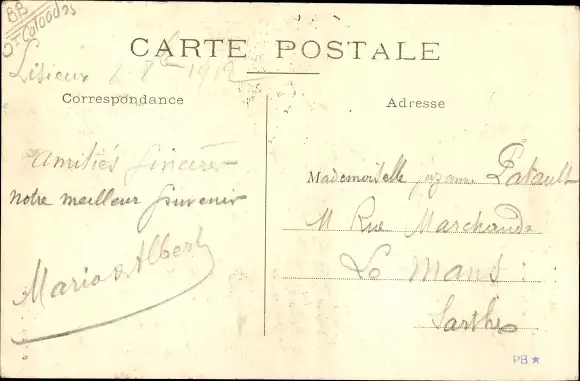 BB
CARTE POSTALE
Lisieux 8 8bre 1912
Correspondance
Adresse
Amitiés sincères
notre meilleur souvenir
Maria & Albert
Mademoiselle Suzanne Patault
11 Rue Marchande
Le Mans
Sarthe
PB